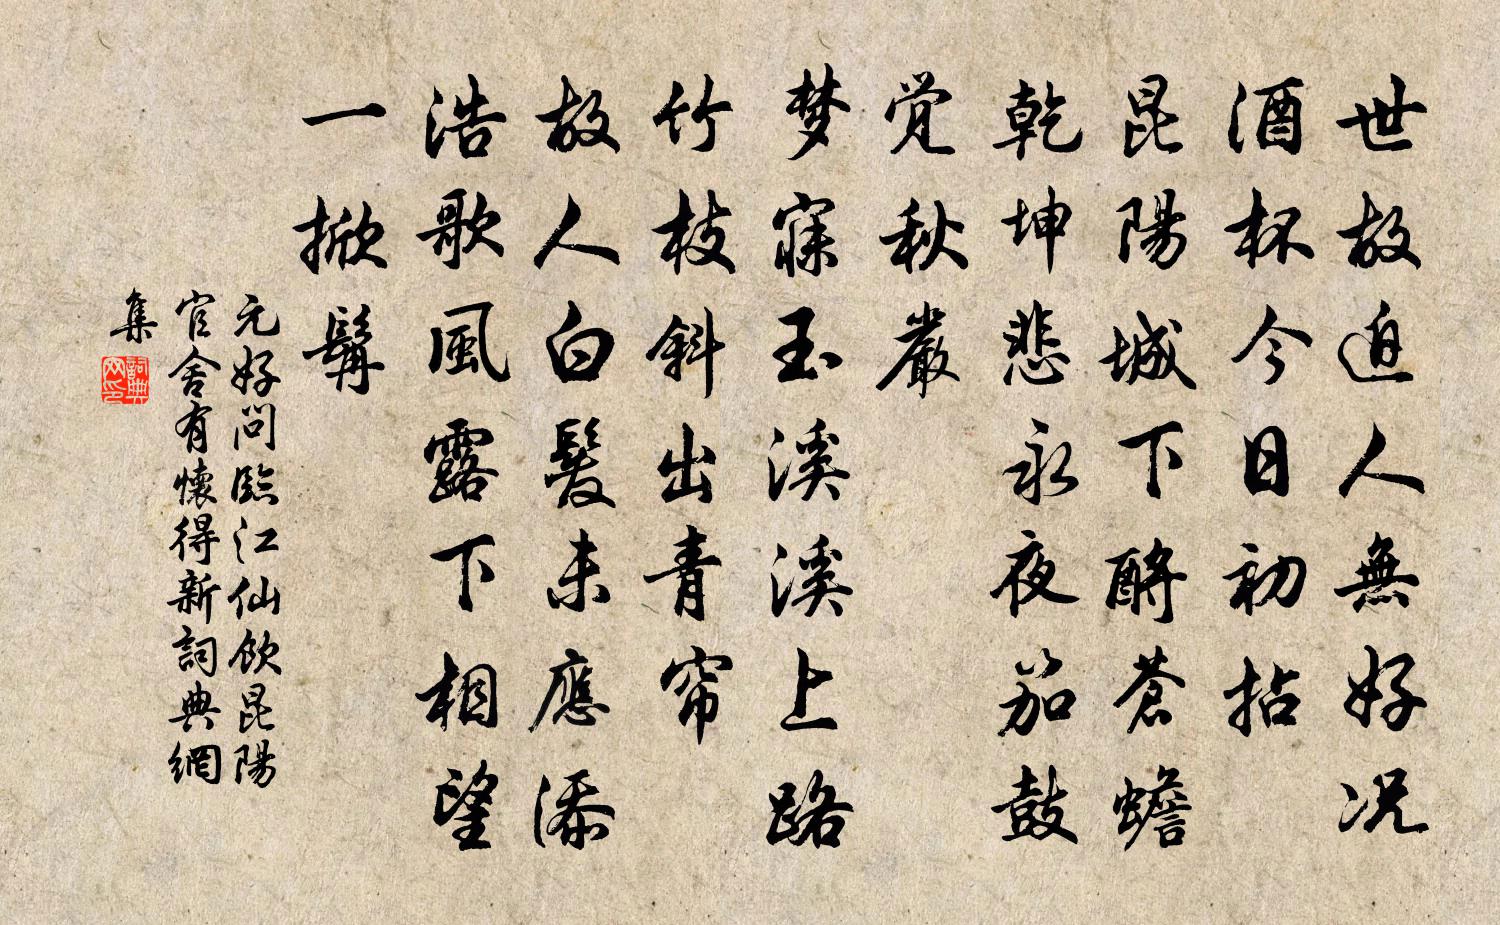 世故迫人無好况
酒杯今日初拈
昆陽城下酹蒼蟾
乾坤悲永夜笳鼓
觉秋嚴
梦寐玉溪溪上路
竹枝斜出青帘
故人白髮未應添
浩歌風露下相望
一掀髯
元好問臨江仙飲昆陽
官舍有懷得新詞典網
集
詞典
网印